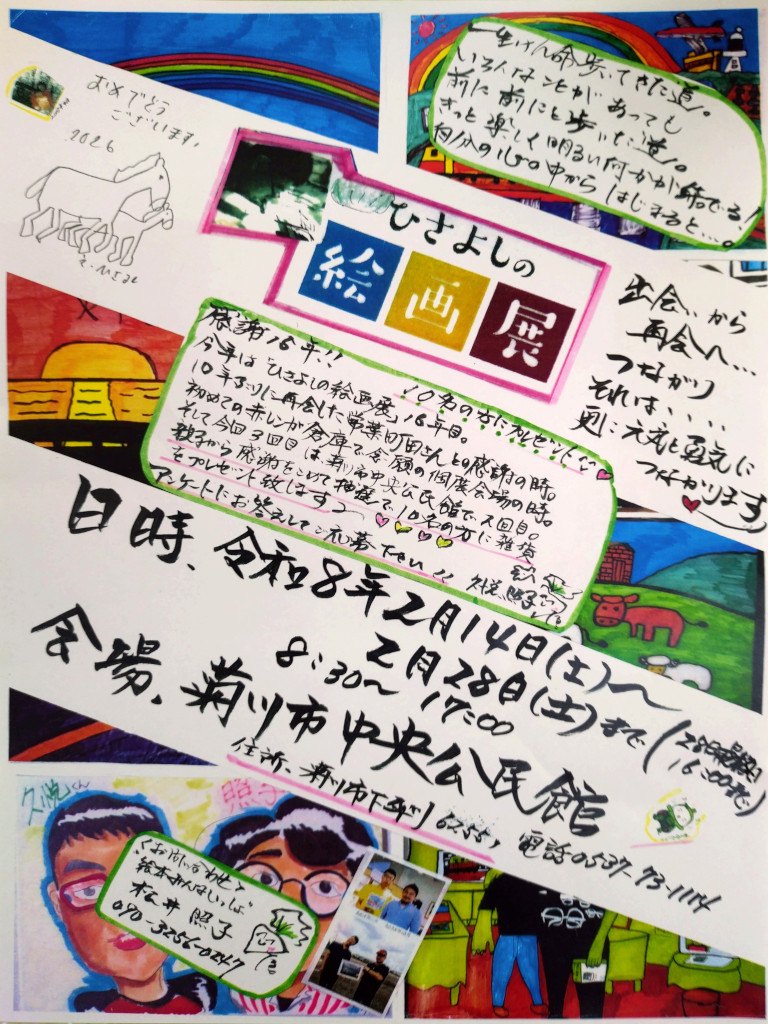 おめでとう
ございます。
2026
一生けん命歩いてきた道。
いろんなことがあっても
前に前にと歩いた道。
きっと楽しく明るい何かが舞でる!
自分の心の中からはじまると…。
ひさよしの
絵画展
出会いから
再会へ…
つながり
それは、、、、
更に元気と勇気に
つながります
感謝16年!!
10名の方にプレゼント
今年は「ひさよしの絵画展」16年目。
10年ぶりに再会した営業町田さんとの感謝の時。
初めての赤レンガ倉庫で念願の個展会場の時。
そして今回3回目は菊川市中央公民館で2回目。
親子から感謝をこめて抽選で10名の方に雑貨
をプレゼント致します
アンケートにお答えしてご応募下さい
久悦、照子
日時、令和8年2月14日(土)〜
2月28日(土)まで
8:30〜17:00
(28日最終日
16:00まで)
会場、菊川市中央公民館
住所、菊川市下平川6255,
電話0537-73-1114
久悦くん
照子
お問い合わせ
絵本おんはい、しば
松井照子
090-3256-0247